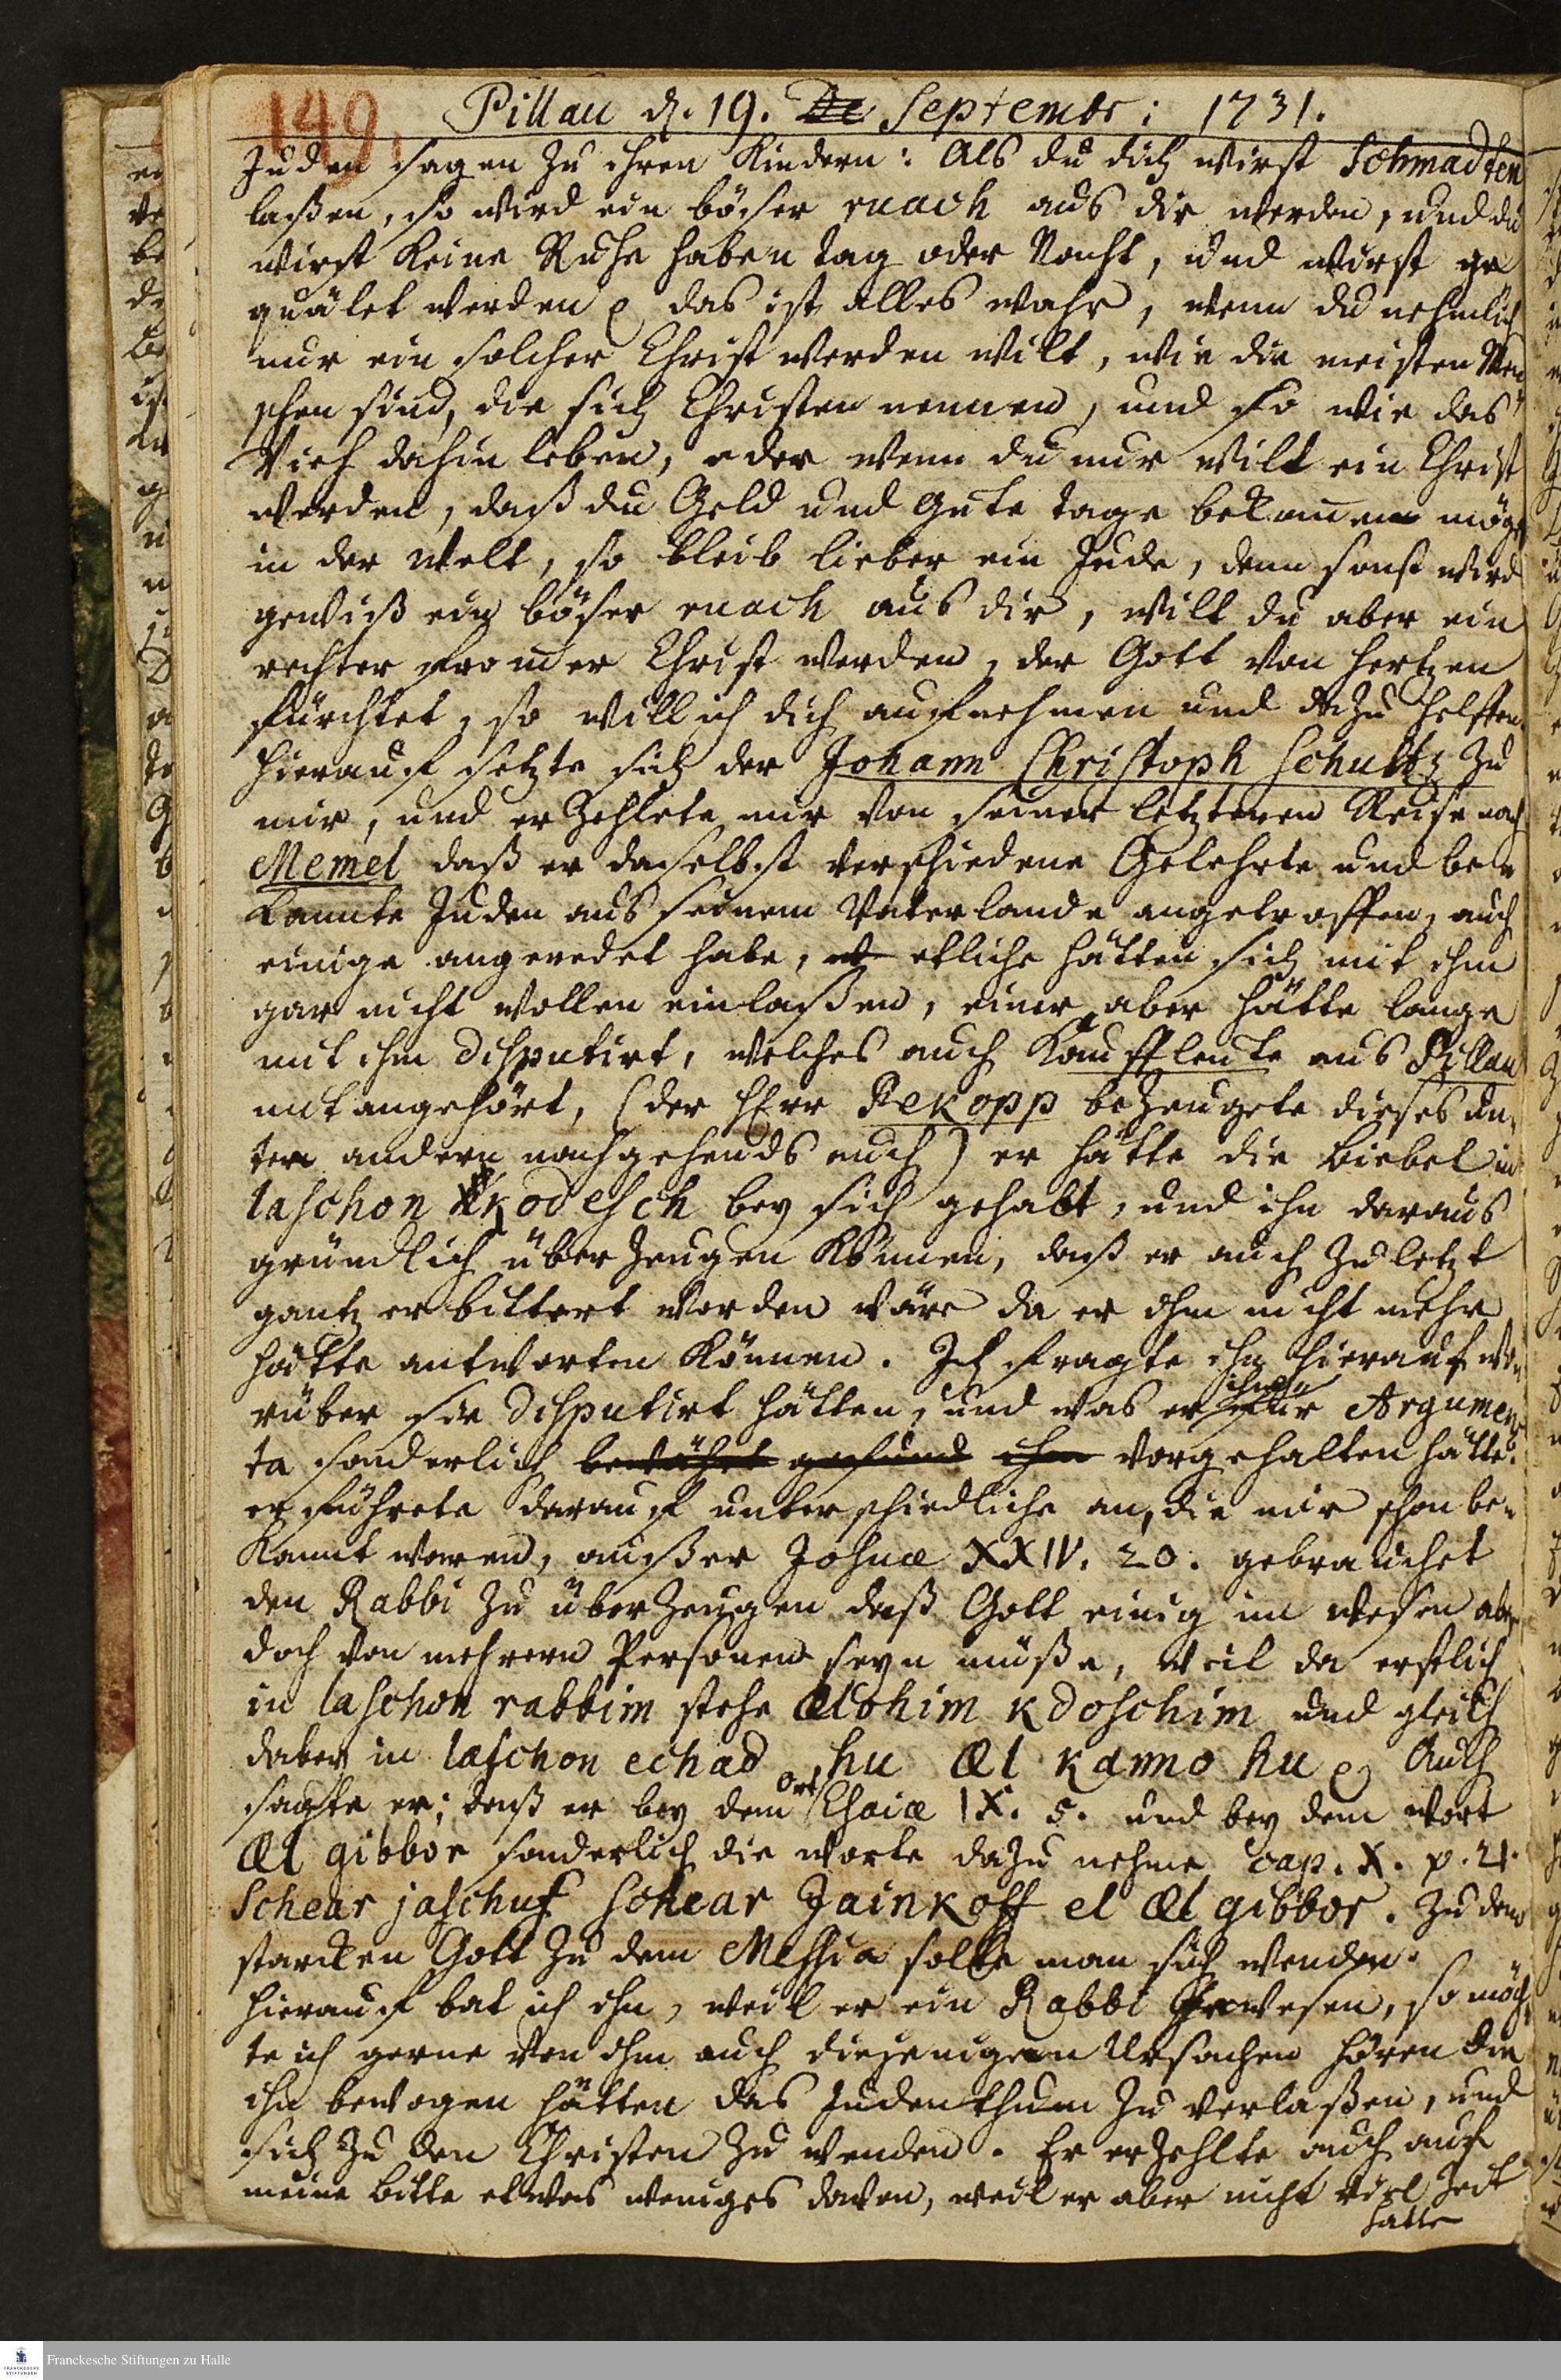 149.
Pillau d. 19. De Septembr: 1731.
Juden sagen zu ihren Kindern: Als du dich wirst Schmadten
laßen, so wird ein böser ruach aus dir werden, und du
wirst keine Ruhe haben tag oder Nacht, und wirst ge
quälet werden das ist alles wahr, wenn du nehmlich
nur ein solcher Christ werden wilt, wie die meisten Men
schen sind, die sich Christen nennen, und so wie das
Vieh dahin leben, oder wenn du nur wilt ein Christ
werden, daß du Geld und gute tage bekom̄en mögst
in der Welt, so bleib lieber ein Jude, denn sonst wird
gewiß ein böser ruach aus dir, wilt du aber ein
rechter from̄er Christ werden, der Gott von Hertzen
fürchtet, so will ich dich aufnehmen und dazu helffen.
Hierauf setzte sich der Johann Christoph Schultz zu
mir, und erzehlete mir von seiner letzteren Reise nach
Memel daß er daselbst verschiedene Gelehrte und be-
kannte Juden aus seinem Vaterlande angetroffen, auch
einige angeredet habe, etliche hätten sich mit ihm
gar nicht wollen einlaßen, einer aber hätte lange
mit ihm disputirt, welches auch Kauffleute aus Pillau
mit angehört, (der Herr Rekopp bezeugete dieses un-
ter andern nachgehends auch) er hätte die Biebel in
laschon kodesch bey sich gehabt, und ihn daraus
gründlich überzeugen können, daß er auch zuletzt
gantz erbittert worden wäre da er ihm nicht mehr
hätte antworten können. Ich fragte ihn hierauf wo-
rüber sie disputirt hätten, und was er ihm für Argumen-
ta sonderlich bewährt gefund ihm vorgehalten hätte?
er führete darauf unterschiedliche an, die mir schon be-
kannt waren, außer Josuæ XXIV. 20. gebrauchet
den Rabbi zu überzeugen daß Gott einig im Wesen aber
doch von mehrern Personen seyn müße, weil da erstlich
in laschon rabbim stehe ælohim kdoschim und gleich
dabey in laschon echad, hu æl kanno hu Auch
sagte er; daß er bey dem Ort Esaiæ IX. 5. und bey dem Wort
æl gibbor sonderlich die Worte dazu nehme cap. X. v. 21.
Schear jaschuf schear Jainkoff el æl gibbor. zu dem
starcken Gott zu dem Messia solte man sich wenden.
Hierauf bat ich ihn, weil er ein Rabbi gewesen, so möch-
te ich gerne von ihm auch diejenigen Ursachen hören die
ihn bewogen hätten das Judenthum zu verlaßen, und
sich zu den Christen zu wenden. Er erzehlte auch auf
meine Bitte etwas weniges davon, weil er aber nicht viel Zeit
hatte
Franckesche Stiftungen zu Halle